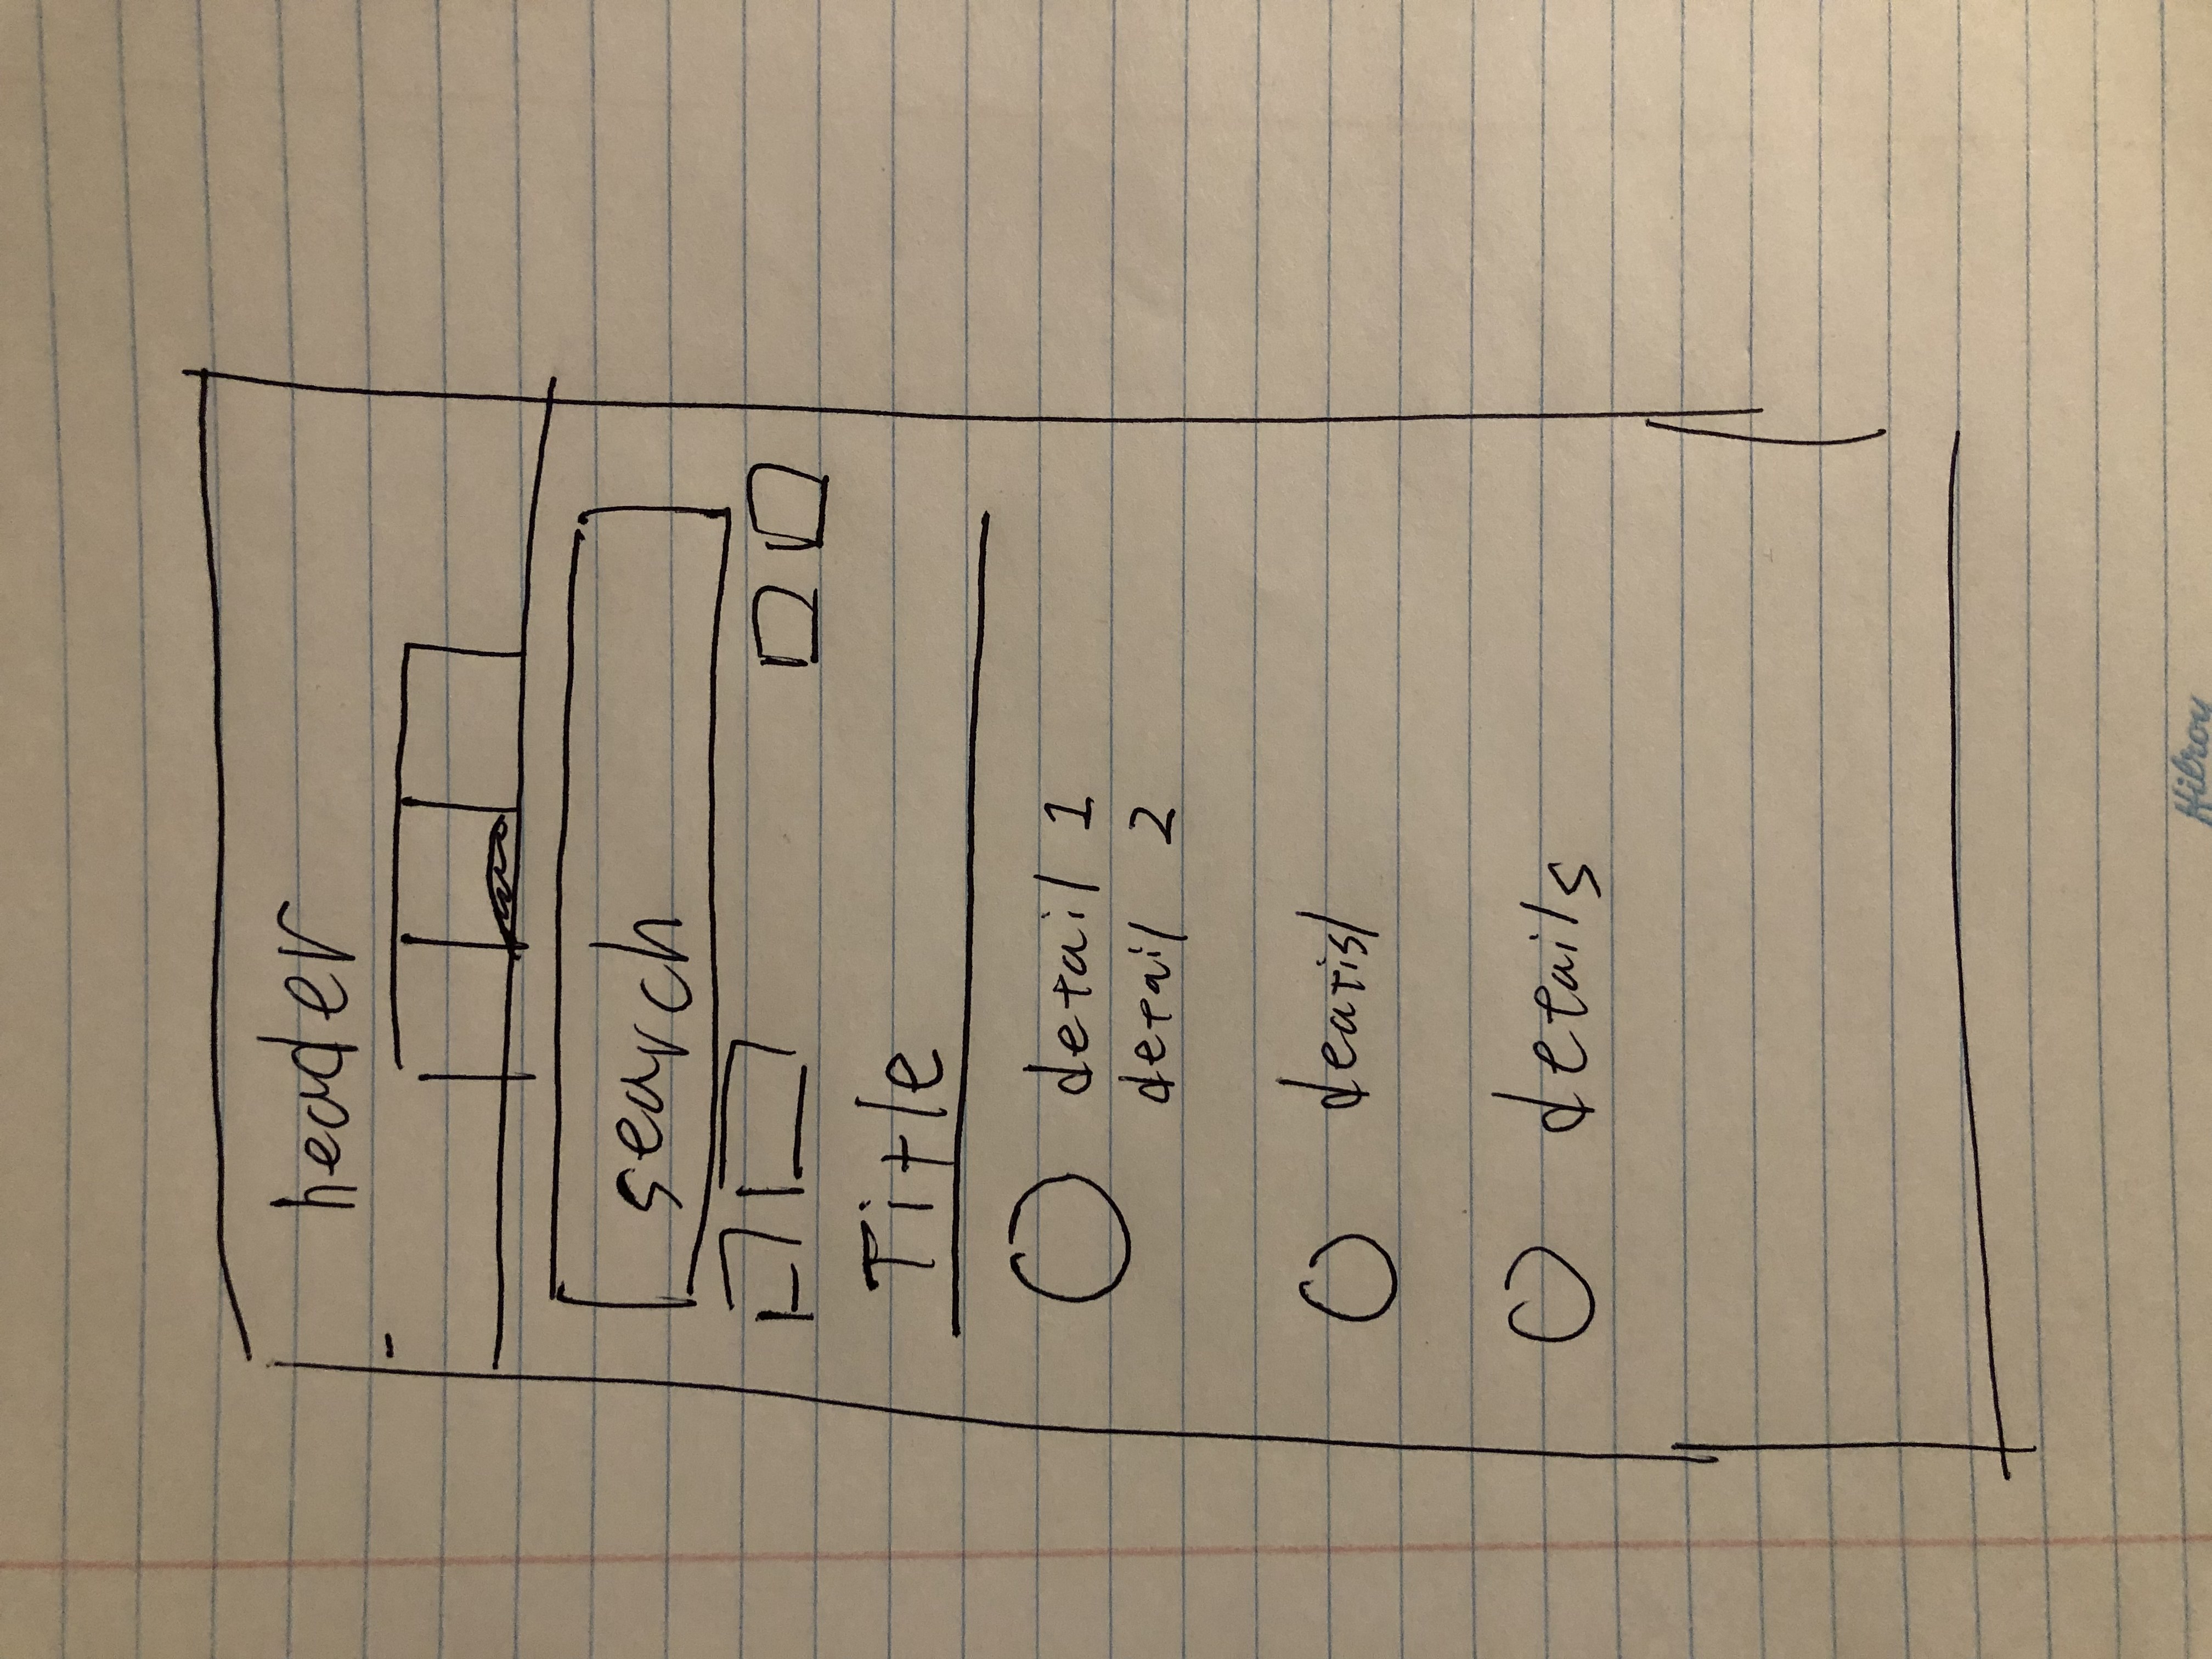 header
search
Title
detail 1
detail 2
deatisl
details
Hilroy